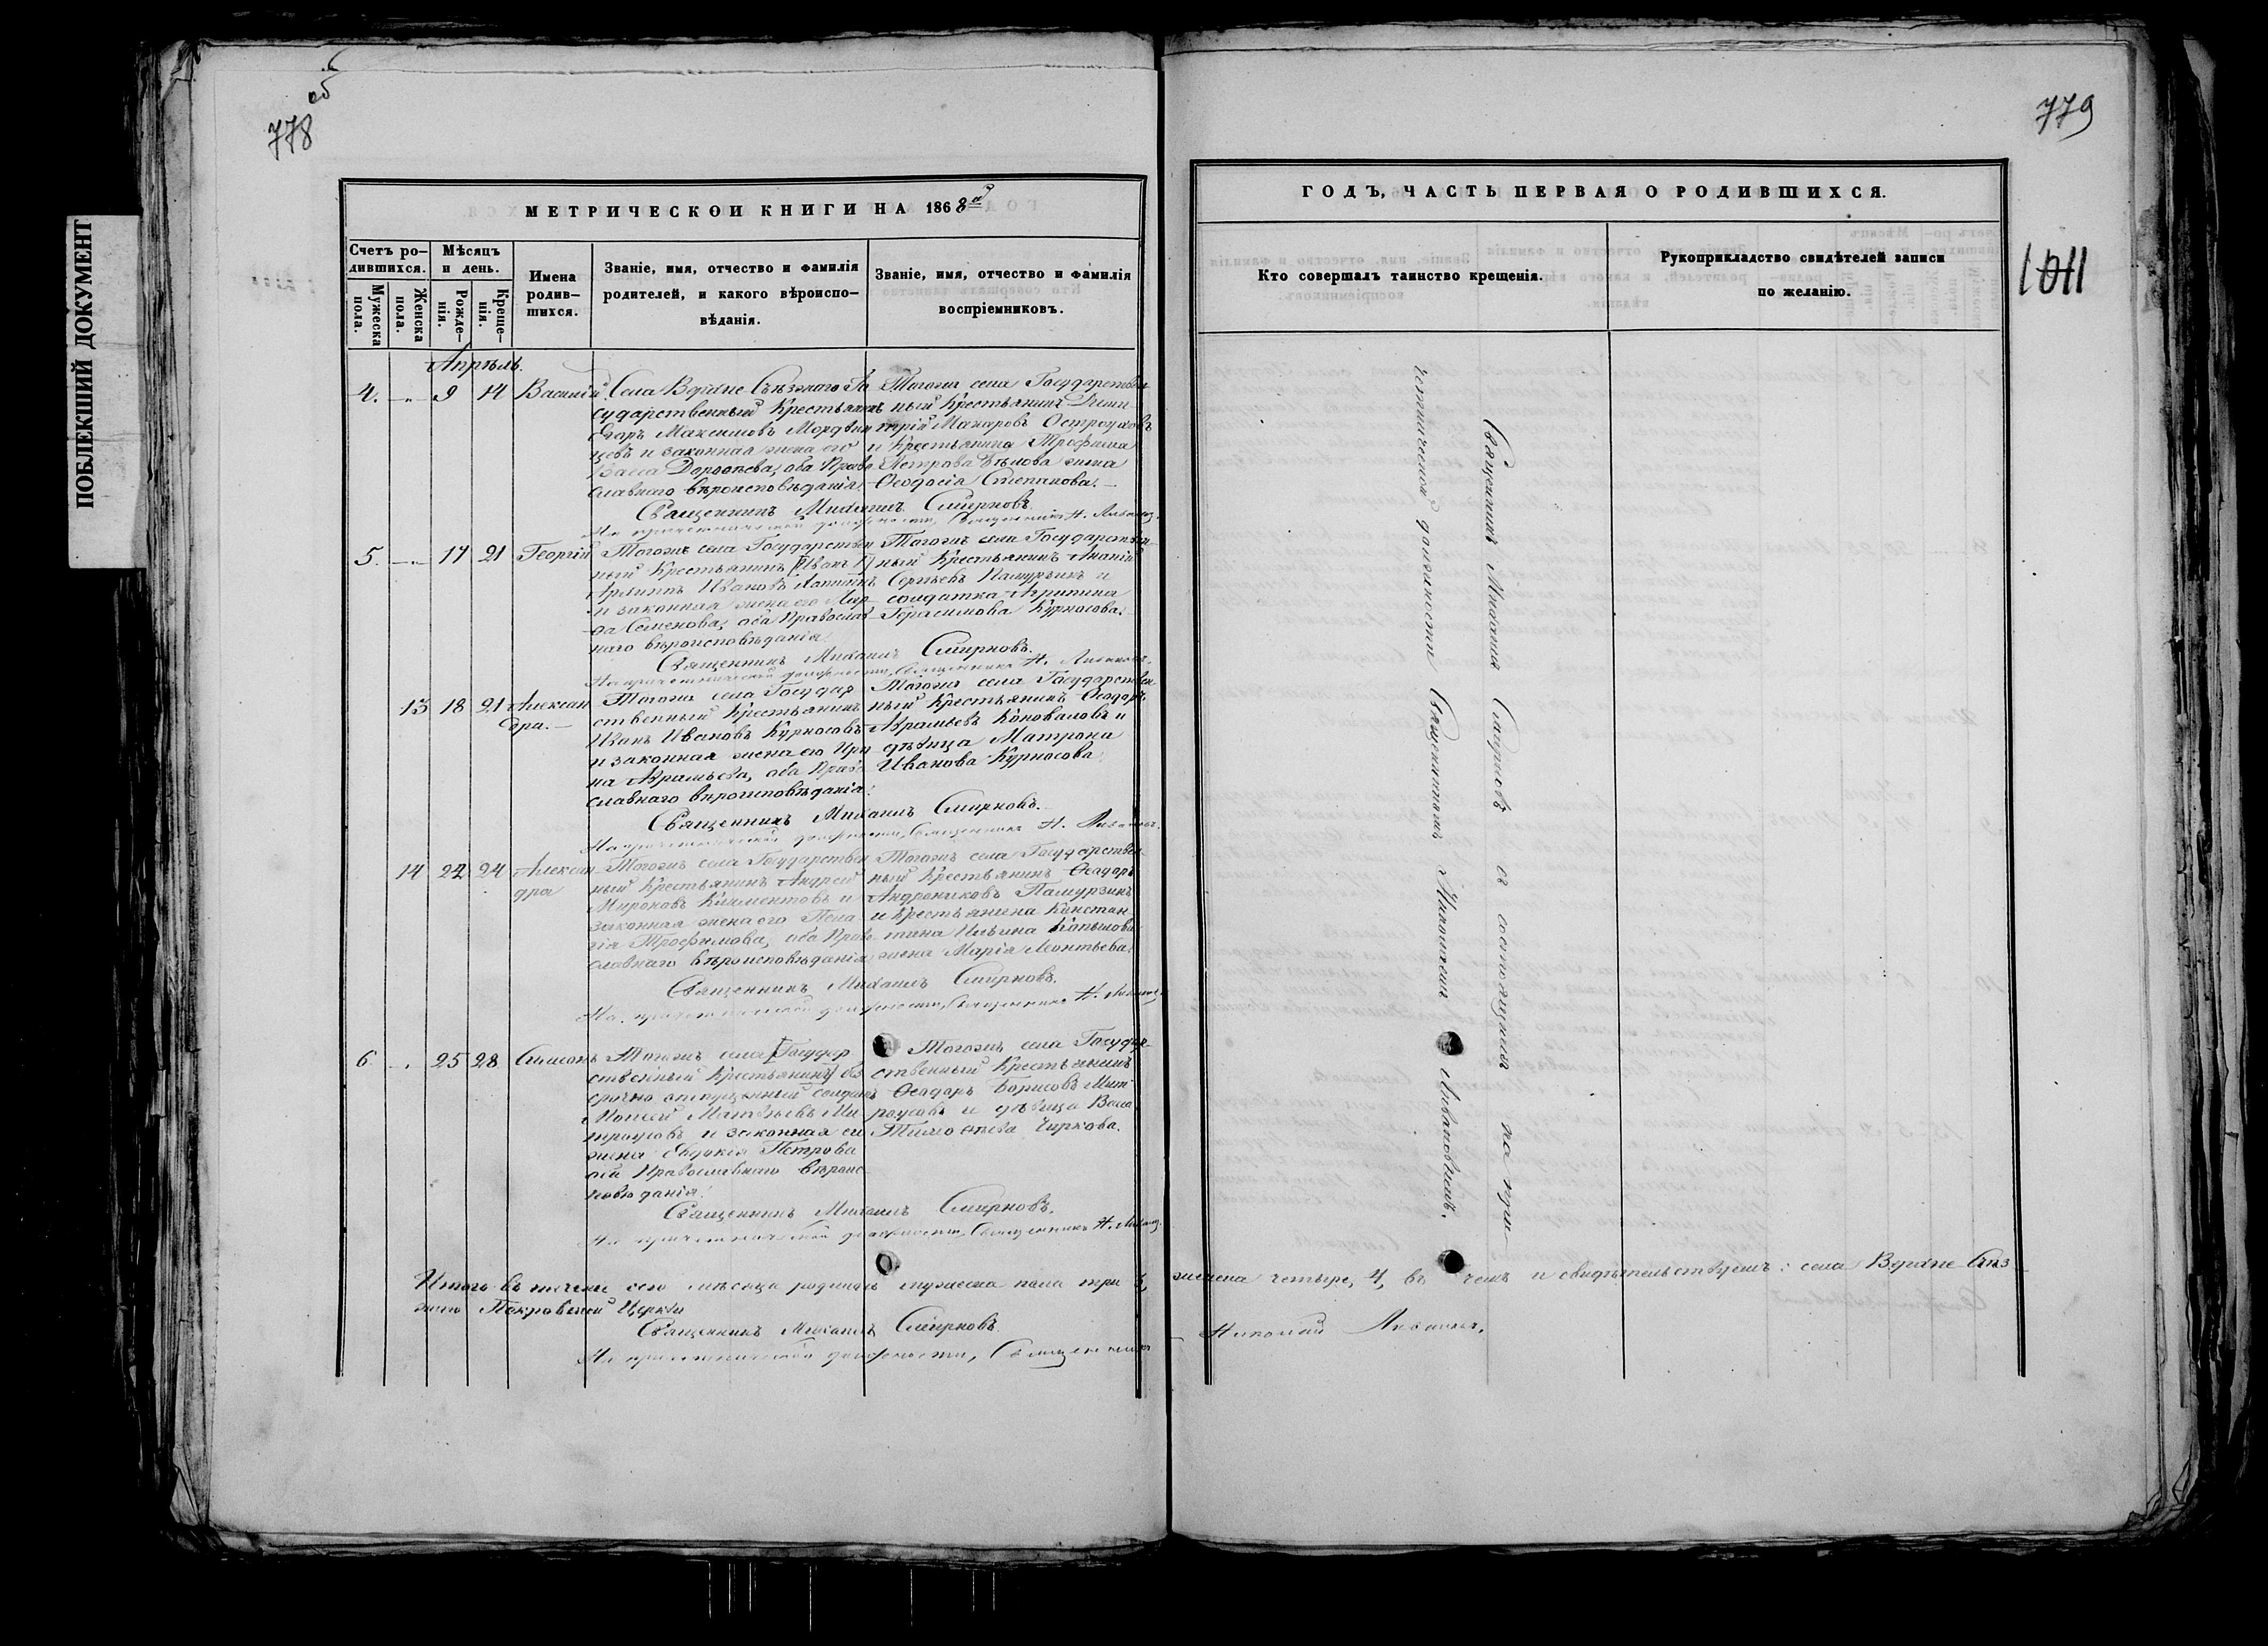 778
об
ПОБЛЕКШИЙ ДОКУМЕНТ
МЕТРИЧЕСКОЙ КНИГИ НА 1868ой
Счетъ ро-
дившихся.
Мужеска
пола.
Женска
пола.
Мѣсяцъ
и день.
Рожде-
нія.
Креще-
нія.
Имена
родив-
шихся.
Званіе, имя, отчество и фамилія
родителей, и какого вѣроиспо-
вѣданія.
Званіе, имя, отчество и фамилія
воспріемниковъ.
Апрѣль.
4. -„- 9 14 Василій
Села Вдрине Съѣзжаго Го
сударственный Крестьянинъ
Егоръ Максимовъ Мордвин
цевъ и законная жена его
Васса Дороѳеева, оба Право
славнаго вѣроисповѣданія.
Тогожъ села Государствен
ный Крестьянинъ Дими
трій Макаровъ Остроуховъ
и Крестьянина Трофима
Петрова Бѣлова жена
Ѳеодосія Степанова.
Священникъ Михаилъ Смирновъ.
На причетнической должности, Священникъ Н. Ливановъ.
5. -„- 17 21 Георгій
Тогожъ села Государствен
ный Крестьянинъ (Иванъ)
Архиппъ Ивановъ Лапшинъ
и законная жена его Мар
ѳа Семенова, оба Православ
наго вѣроисповѣданія.
Тогожъ села Государствен-
ный Крестьянинъ Ананій
Сергѣевъ Памурзинъ и
солдатка Агрипина
Герасимова Курносова.
Священникъ Михаилъ Смирновъ.
На причетнической должности, Священникъ Н. Ливановъ.
13 18 21 Алексан
дра.
Тогожъ села Государ
ственный Крестьянинъ
Иванъ Ивановъ Курносовъ
и законная жена его Ири
на Аврамьева, оба Право
славнаго вѣроисповѣданія.
Тогожъ села Государствен
ный Крестьянинъ Ѳеодоръ
Аврамьевъ Коноваловъ и
дѣвица Матрона
Иванова Курносова
Священникъ Михаилъ Смирновъ.
На причетнической должности, Священникъ Н. Ливановъ.
14 22 24 Алексан
дра
Тогожъ села Государствен
ный Крестьянинъ Андрей
Мироновъ Климентовъ и
законная жена его Пела
гія Трофимова, оба Право
славнаго вѣроисповѣданія
Тогожъ села Государствен-
ный Крестьянинъ Ѳеодоръ
Андрониковъ Памурзинъ
и Крестьянина Констан
тина Ильина Копылова
жена Марія Леонтьева.
Священникъ Михаилъ Смирновъ.
На причетнической должности, Священникъ Н. Ливановъ.
6 25 28 Симеонъ
Тогожъ села (Государ
ственный Крестьянинъ) без
срочно отпущенный солдатъ
Моисей Матвѣевъ Ми
троусовъ и законная его
жена Евдокія Петрова
оба Православнаго вѣроис
повѣданія.
Тогожъ села Государ-
ственный Крестьянинъ
Ѳеодоръ Борисовъ Мит
роусовъ и дѣвица Васса
Тимоѳеева Чиркова.
Священникъ Михаилъ Смирновъ.
На причетнической должности, Священникъ Н. Ливановъ.
Итого въ теченіи сего мѣсяца родилось мужеска пола три 3, женска четыре, 4, въ чемъ и свидѣтельствуемъ: села Вдрине Съѣз
жаго Покровской Церкви
Священникъ Михаилъ Смирновъ.
На причетнической должности, Священникъ Николай Ливановъ.
779
1011
ГОДЪ, ЧАСТЬ ПЕРВАЯ О РОДИВШИХСЯ.
Кто совершалъ таинство крещенія.
Рукоприкладство свидѣтелей записи
по желанію.
Священникъ Михаилъ Смирновъ съ состоящимъ на при-
четнической должности Священникомъ Николаемъ Ливановымъ.